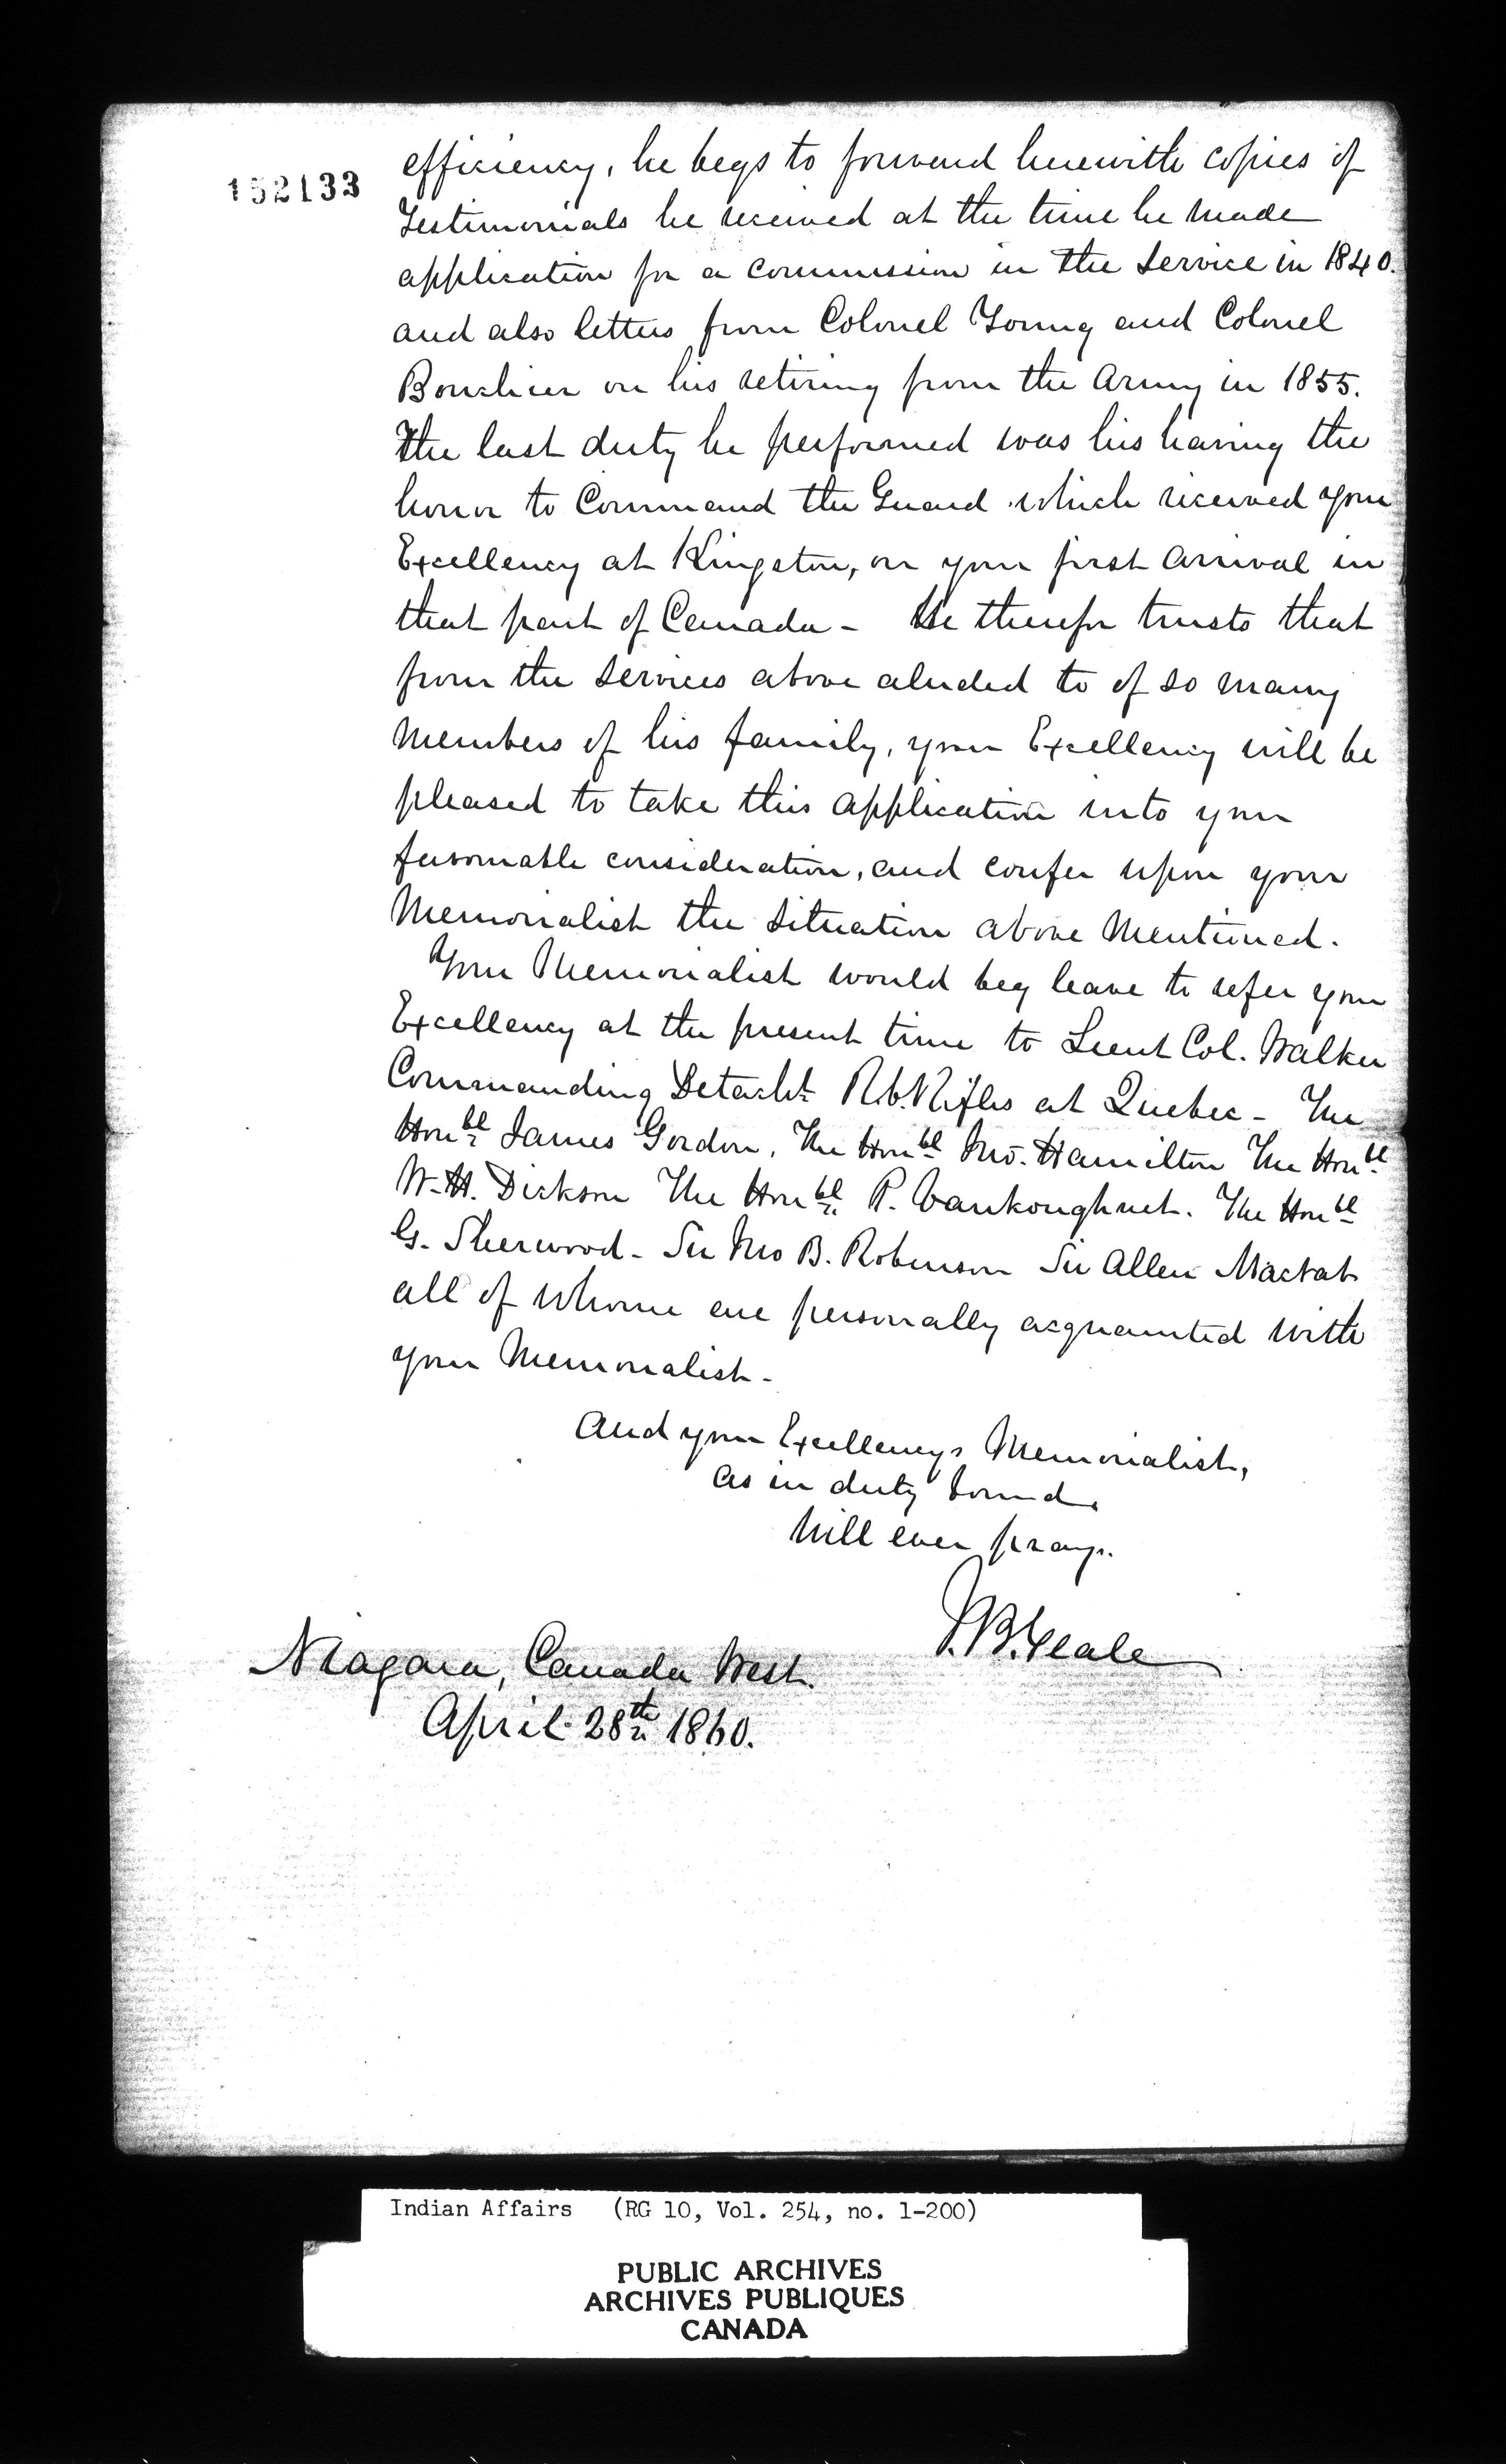 152133
efficiency, he begs to forward herewith copies of
Testimonials he received at the time he made
application for a commission in the Service in 1840.
and also letters from Colonel Young and Colonel
Bourchier on his retiring from the Army in 1855.
The last duty he performed was his having the
honor to Command the Guard which received your
Excellency at Kingston, on your first arrival in
that part of Canada - He therefor trusts that
from the Services above aluded to of so many
Members of his family, your Excellency will be
pleased to take this application into your
favourable consideration, and confer upon your
Memorialist the Situation above Mentioned.
Your Memorialist would beg leave to refer your
Excellency at the present time to Lieut Col. Walker
Commanding Detacht R.C. Rifles at Quebec - The
Honbl James Gordon, The Honbl Jno. Hamilton The Honbl
W. H. Dickson The Honbl P. Vankoughnet. The Honbl
G. Sherwood - Sir Jno B. Robinson Sir Allen Macnab
all of whome are personally acquainted with
your Memorialist -
And your Excellencys Memorialist,
as in duty bound,
Will ever pray.
J.B. Geale
Niagara, Canada West.
April 28th 1860.
Indian Affairs (RG 10, Vol. 254, no. 1-200)
PUBLIC ARCHIVES
ARCHIVES PUBLIQUES
CANADA